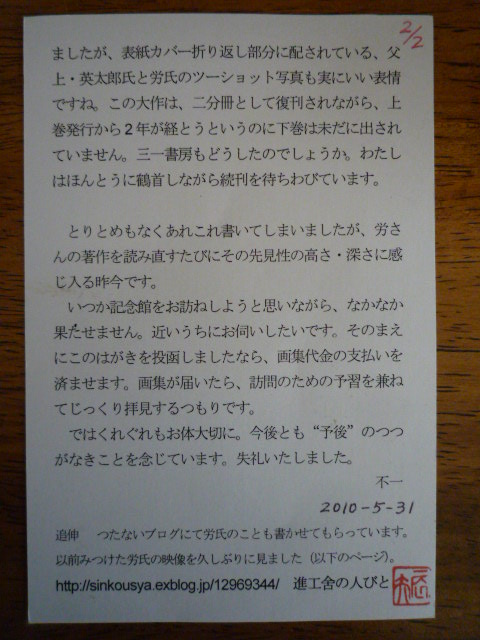 2/2
ましたが、表紙カバー折り返し部分に配されている、父
上・英太郎氏と労氏のツーショット写真も実にいい表情
ですね。この大作は、二分冊として復刊されながら、上
巻発行から2年が経とうというのに下巻は未だに出され
ていません。三一書房もどうしたのでしょうか。わたし
はほんとうに鶴首しながら続刊を待ちわびています。
とりとめもなくあれこれ書いてしまいましたが、労さ
んの著作を読み直すたびにその先見性の高さ・深さに感
じ入る昨今です。
いつか記念館をお訪ねしようと思いながら、なかなか
果たせません。近いうちにお伺いしたいです。そのまえ
にこのはがきを投函しましたなら、画集代金の支払いを
済ませます。画集が届いたら、訪問のための予習を兼ね
てじっくり拝見するつもりです。
ではくれぐれもお体大切に。今後とも“予後”のつつ
がなきことを念じています。失礼いたしました。
不一
2010-5-31
追伸 つたないブログにて労氏のことも書かせてもらっています。
以前みつけた労氏の映像を久しぶりに見ました（以下のページ）。
http://sinkousya.exblog.jp/12969344/ 進工舎の人びと